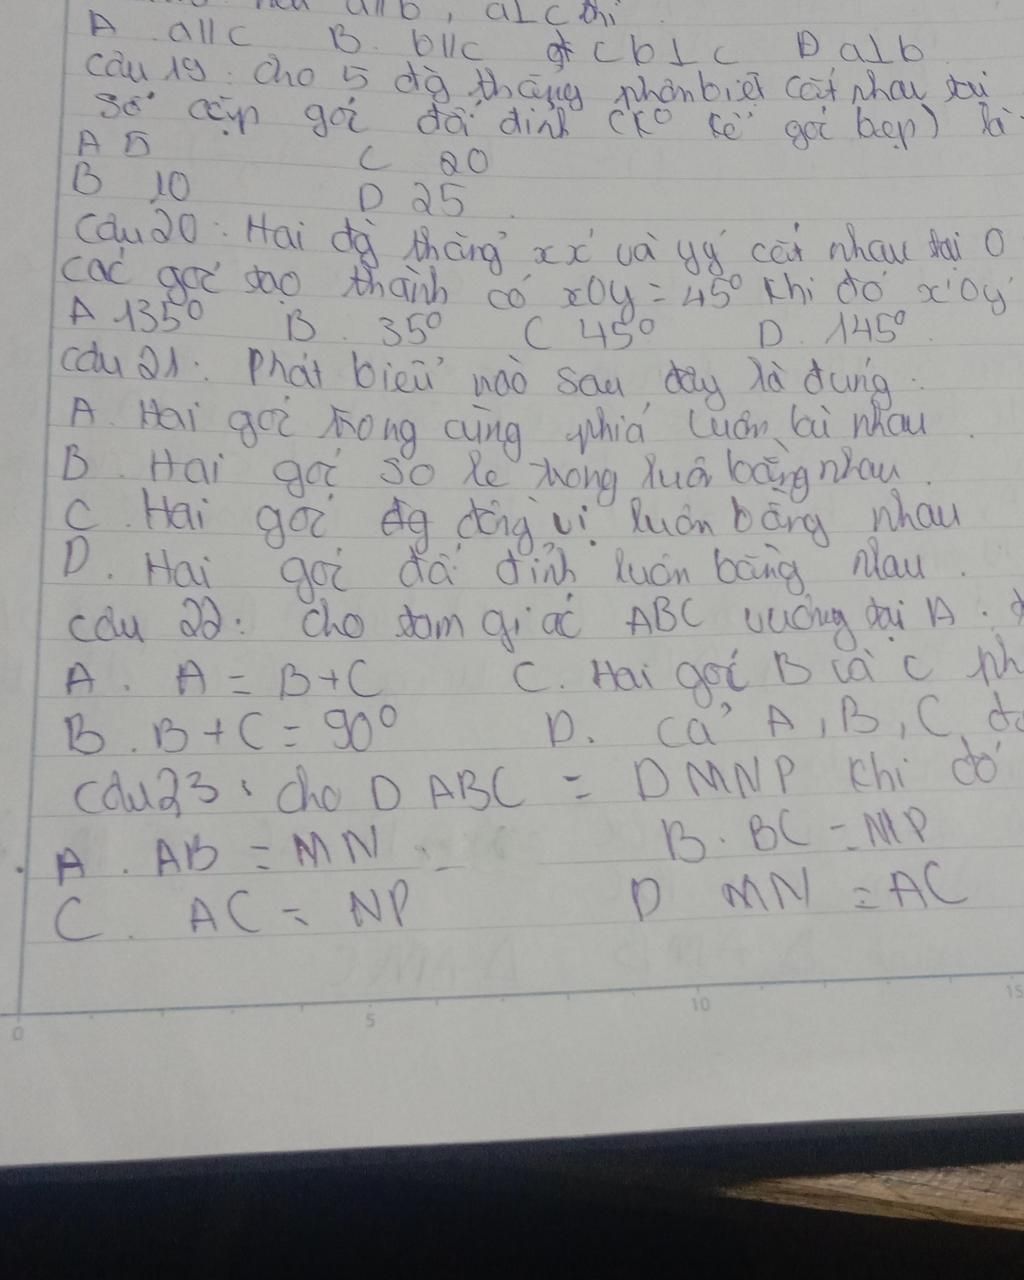 nếu a//b, a⊥c thì
A a//c B. b//c C b⊥c D a⊥b
câu 19: Cho 5 đg thẳng phân biệt cắt nhau tại
số cặp gói đối đỉnh (k° kể góc bẹp) là
A 5 C 20
B 10 D 25
câu 20: Hai đg thẳng xx' và yy' cắt nhau tại O
các góc tạo thành có xOy = 45° khi đó x'Oy'
A 135° B. 35° C 45° D. 145°
câu 21: Phát biểu nào sau đây là đúng:
A. Hai góc trong cùng phía luôn bù nhau.
B. Hai góc so le trong luôn bằng nhau.
C. Hai góc đồng vị luôn bằng nhau
D. Hai góc đối đỉnh luôn bằng nhau.
câu 22: Cho tam giác ABC vuông tại A.
A. A = B+C C. Hai góc B và C ph
B. B+C = 90° D. cả A, B, C
câu 23: cho D ABC = D MNP khi đó
A. AB = MN B. BC = MP
C. AC = NP D MN = AC
0 5 10 15